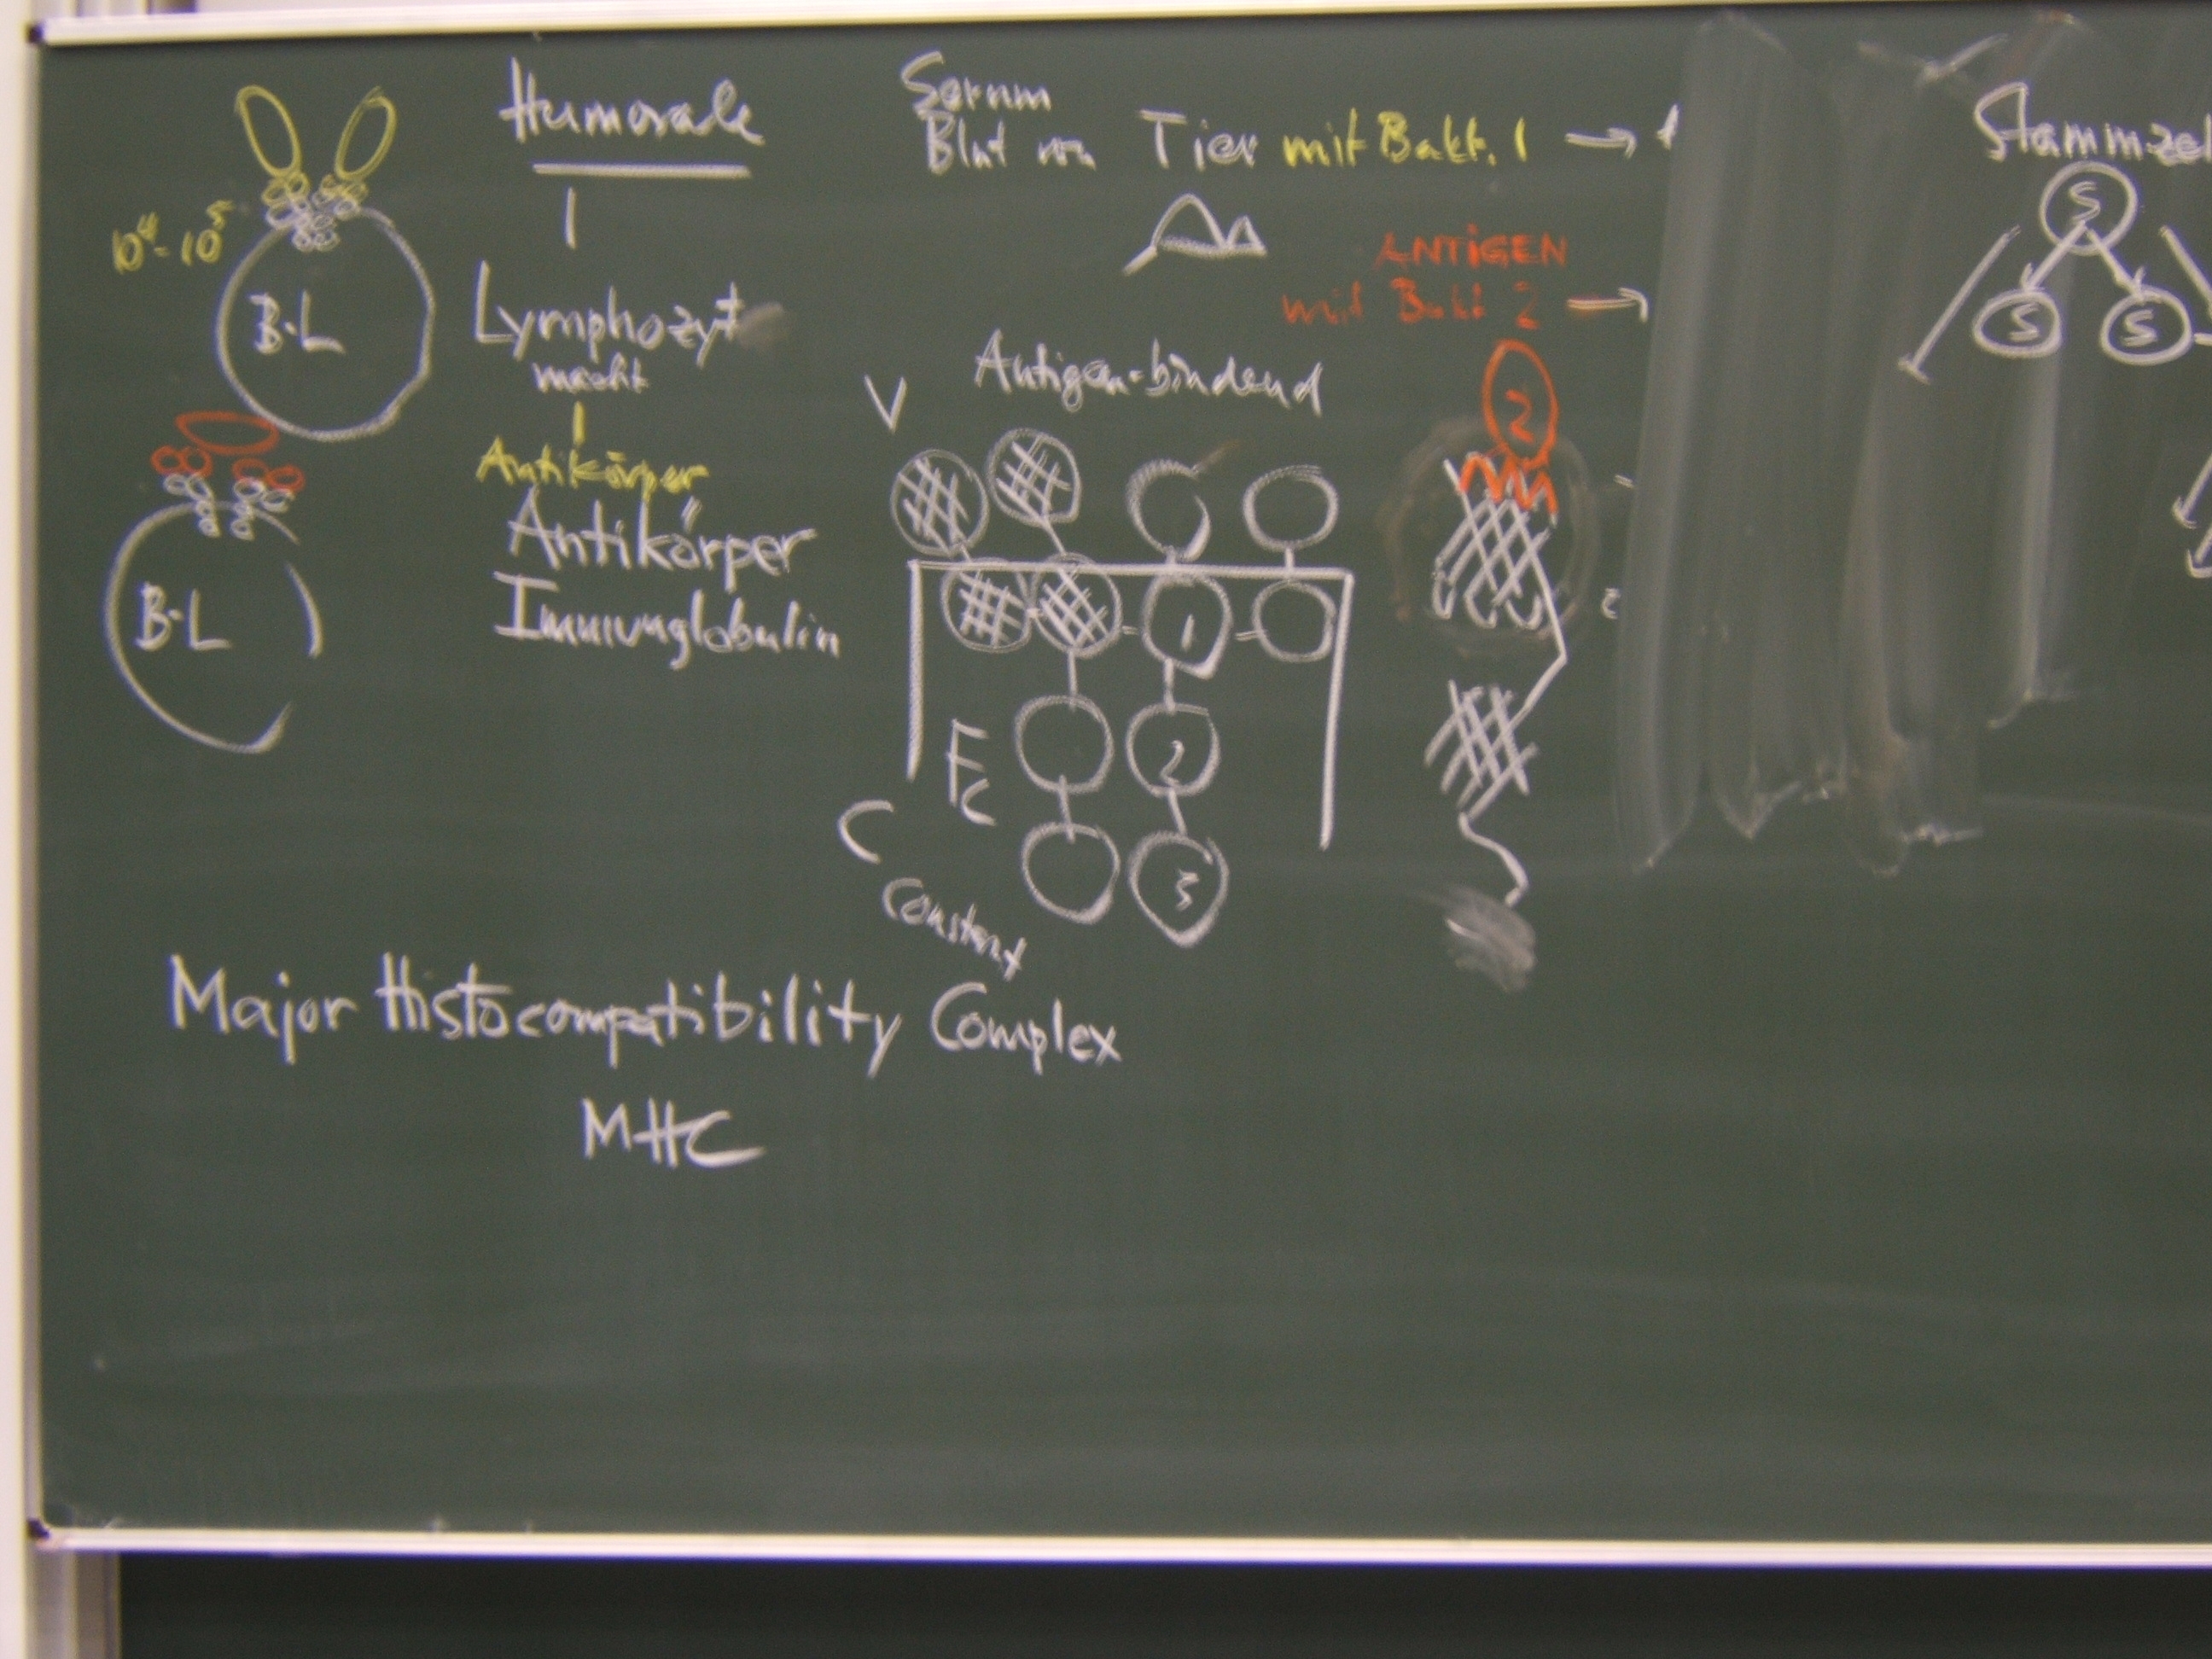 Humorale
Lymphozyt
macht
Antikörper
Antikörper
Immunglobulin
10⁴-10⁵
B-L
B-L
Serum
Blut von Tier mit Bakt. 1 →
ANTIGEN
mit Bakt 2 →
V Antigen-bindend
2
1
2
3
Fc
C
constant
Major Histocompatibility Complex
MHC
Stammzel
S
S S